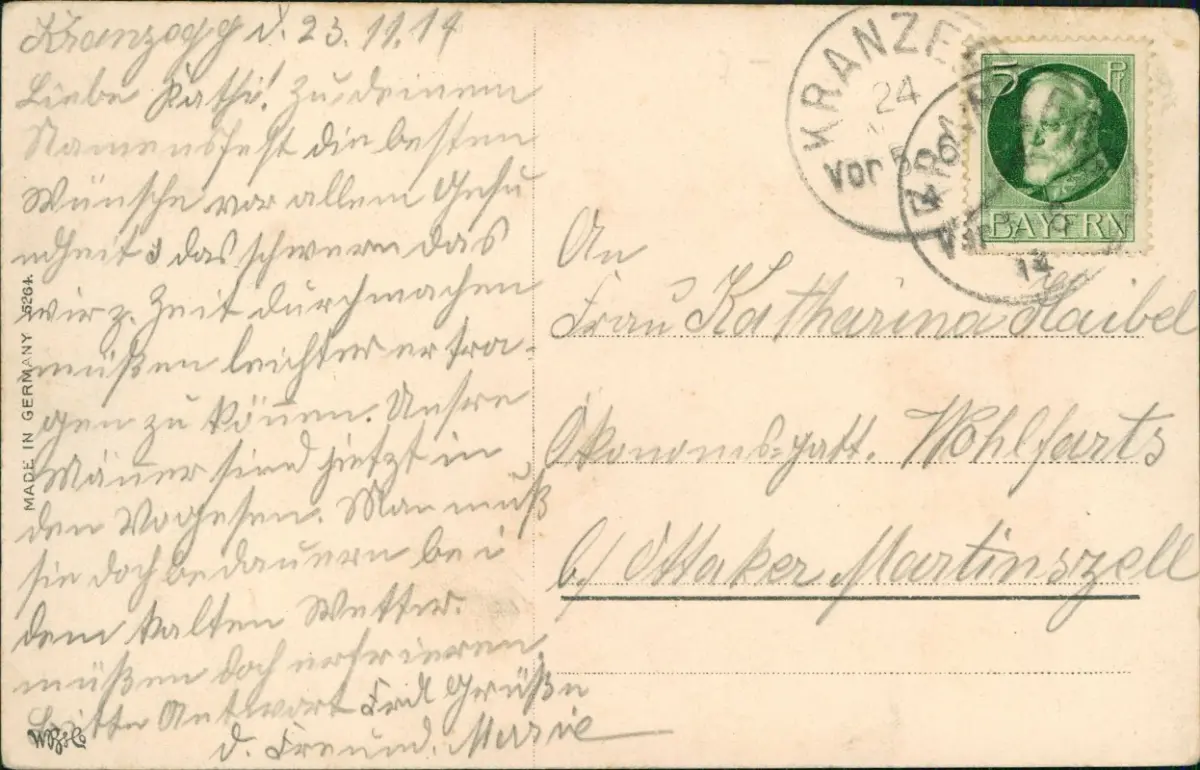 Kranzegg d. 23.11.14
Liebe Kathi! Zu deinem
Namensfest die besten
Wünsche vor allem Gesu
ndheit u das schwere das
wir z. Zeit durchmachen
müßen leichter ertra-
gen zu können. Unsre
Männer sind jetzt in
den Vogesen. Man muß
sie doch bedauern bei
dem kalten Wetter.
müßen doch erfrieren
Bitte Antwort Frdl Grüße
d. Freund. Marie
MADE IN GERMANY 5264
KRANZEGG
24
Vor
KRANZEGG
14
5 Pf
BAYERN
An
Frau Katharina Haibel
Ökonomsgatt. Wohlfarts
b/ Ottaker Martinszell